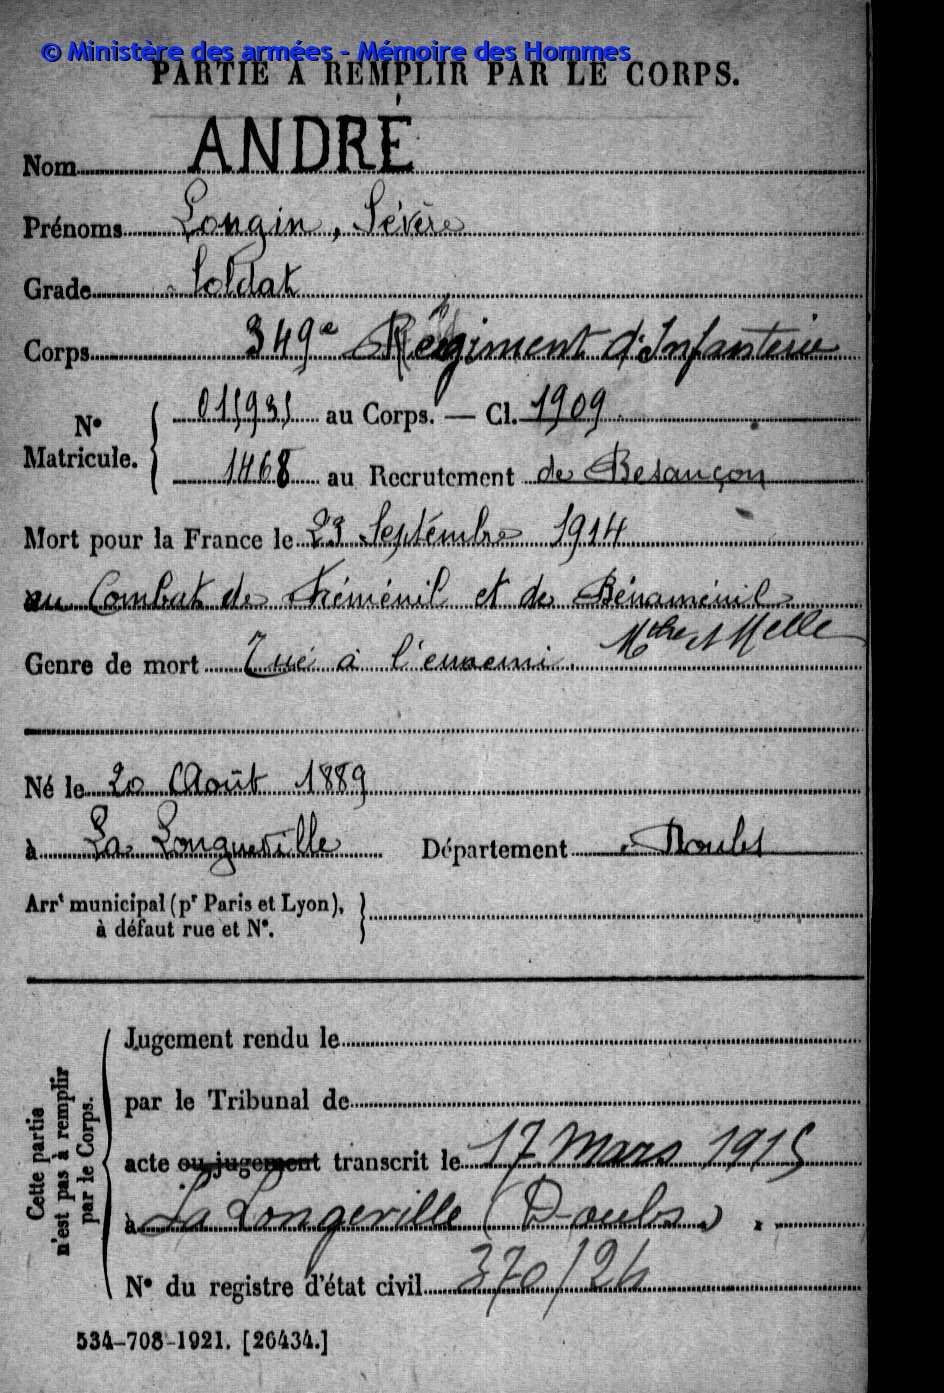 © Ministère des armées - Mémoire des Hommes
PARTIE À REMPLIR PAR LE CORPS.
Nom ANDRÉ
Prénoms Longin, Sévère
Grade Soldat
Corps 349e Régiment d'Infanterie
N° Matricule. 015935 au Corps. — Cl. 1909
1468 au Recrutement de Besançon
Mort pour la France le 23 Septembre 1914
au Combat de Fréménil et de Bénaménil
Mthe et Melle
Genre de mort Tué à l'ennemi
Né le 20 Août 1889
à La Longueville Département Doubs
Arrt municipal (pr Paris et Lyon),
à défaut rue et N°.
Cette partie
n'est pas à remplir
par le Corps.
Jugement rendu le
par le Tribunal de
acte ou jugement transcrit le 17 Mars 1915
à La Longeville (Doubs)
N° du registre d'état civil 370/24
534-708-1921. [26434.]